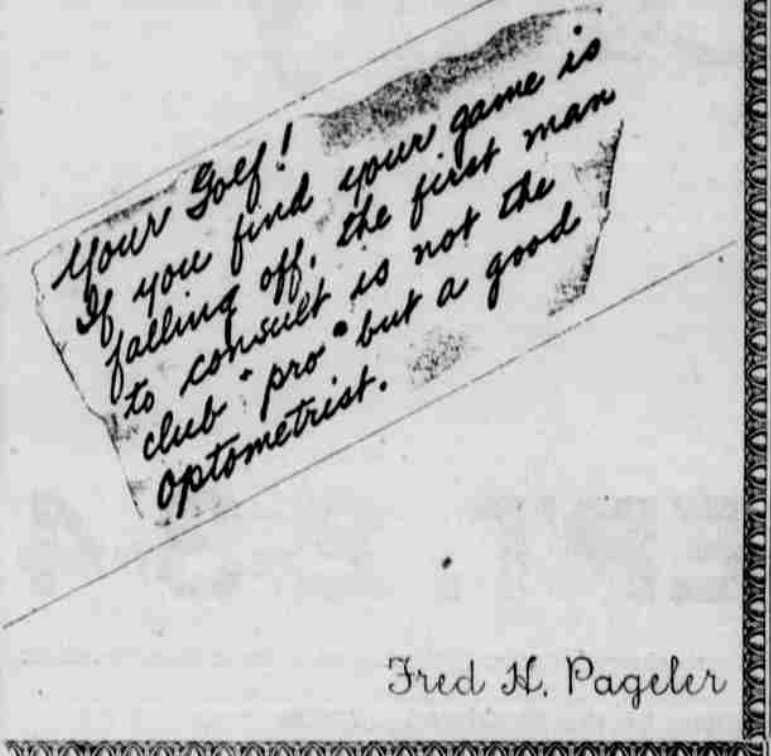 Your Golf!
If you find your game is
falling off, the first man
to consult is not the
club "pro" but a good
optometrist.
Fred H. Pageler